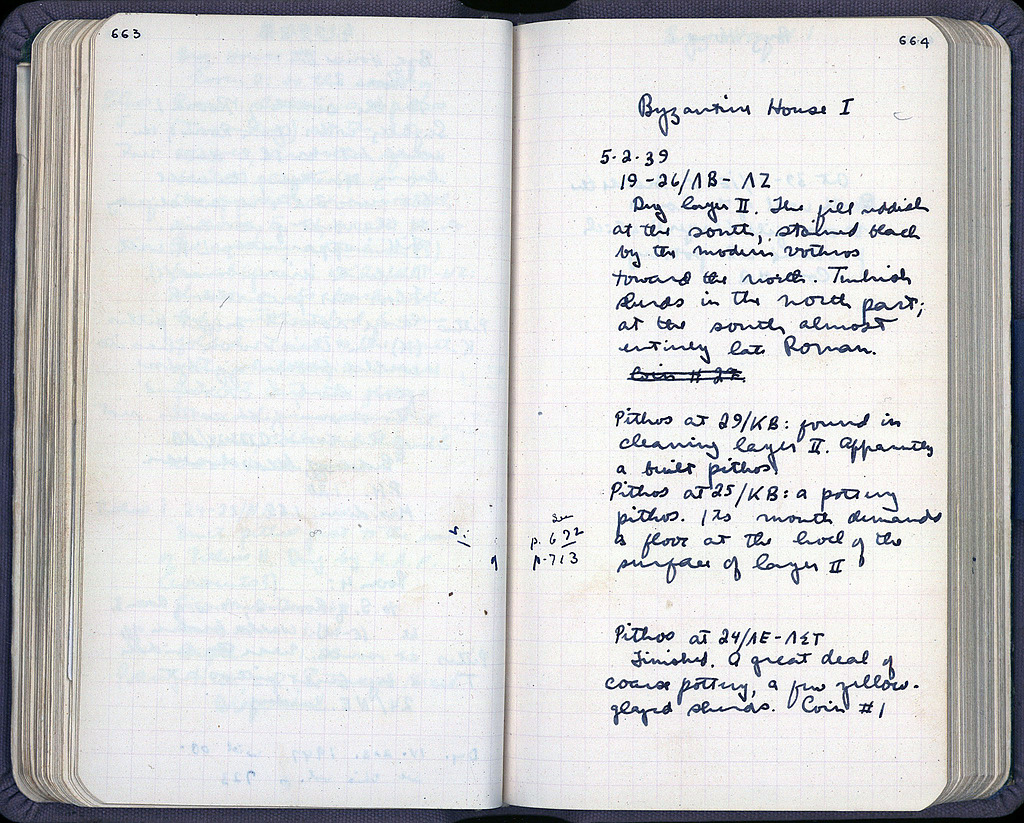 663
664
Byzantine House I
5-2-39
19-26/ΛB-ΛZ
Dug layer II. The fill reddish
at the south, stained black
by the modern bothros
toward the north. Turkish
sherds in the north part;
at the south almost
entirely late Roman.
Coin # 22.
Pithos at 29/KB: found in
cleaning layer II. Apparently
a built pithos.
Pithos at 25/KB: a pottery
pithos. Its mouth demands
a floor at the level of the
surface of layer II
See
p. 672
p-713
Pithos at 24/ΛE-ΛΣT
Finished. A great deal of
coarse pottery, a few yellow-
glazed sherds. Coin #1